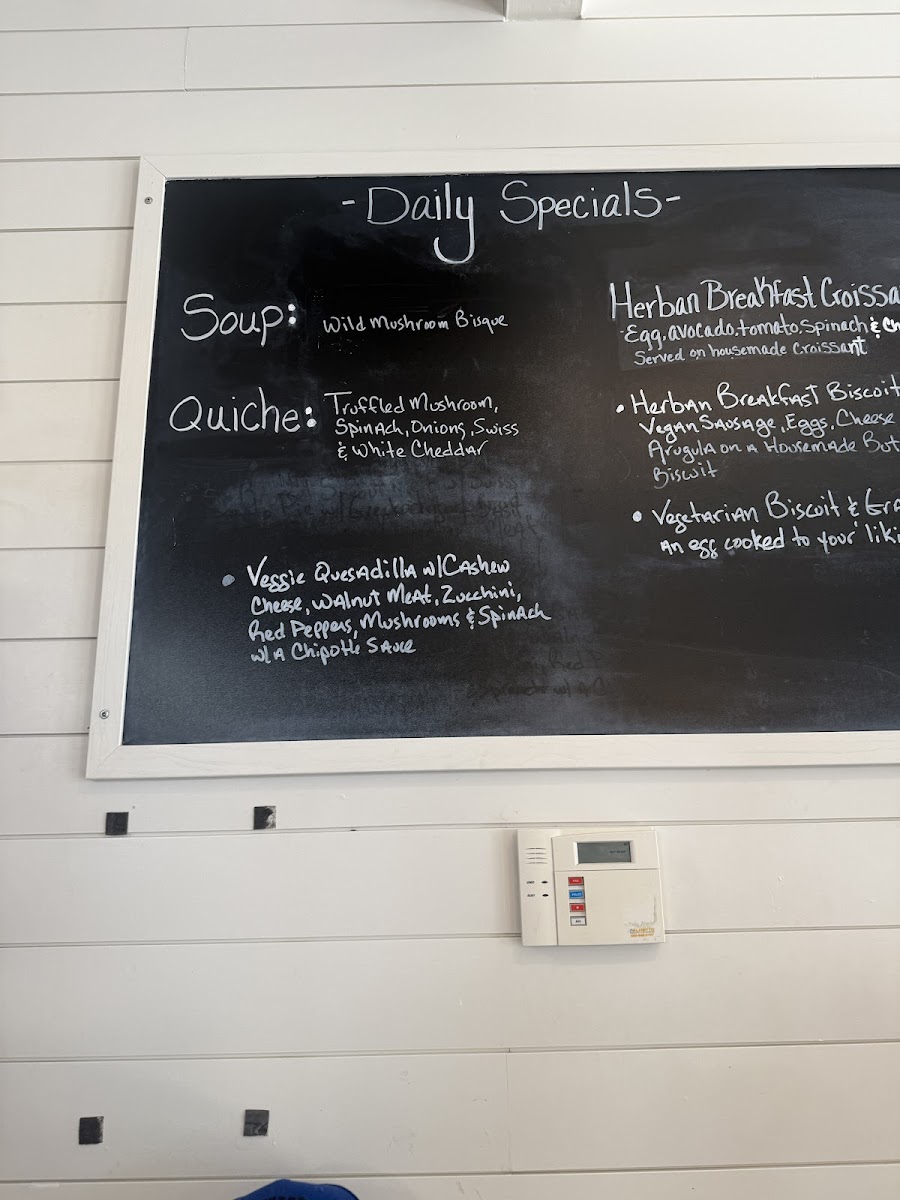 -Daily Specials-
Soup: Wild Mushroom Bisque
Quiche: Truffled Mushroom,
Spinach, Onions, Swiss
& White Cheddar
• Veggie Quesadilla w/Cashew
Cheese, Walnut Meat, Zucchini,
Red Peppers, Mushrooms & Spinach
w/ A Chipotle Sauce
Herban Breakfast Croissa
-Egg, avocado, tomato, Spinach & Ch
Served on housemade Croissant
• Herban Breakfast Biscuit
Vegan Sausage, Eggs, Cheese
Arugula on a Housemade But
Biscuit
• Vegetarian Biscuit & Gra
An egg cooked to your liki